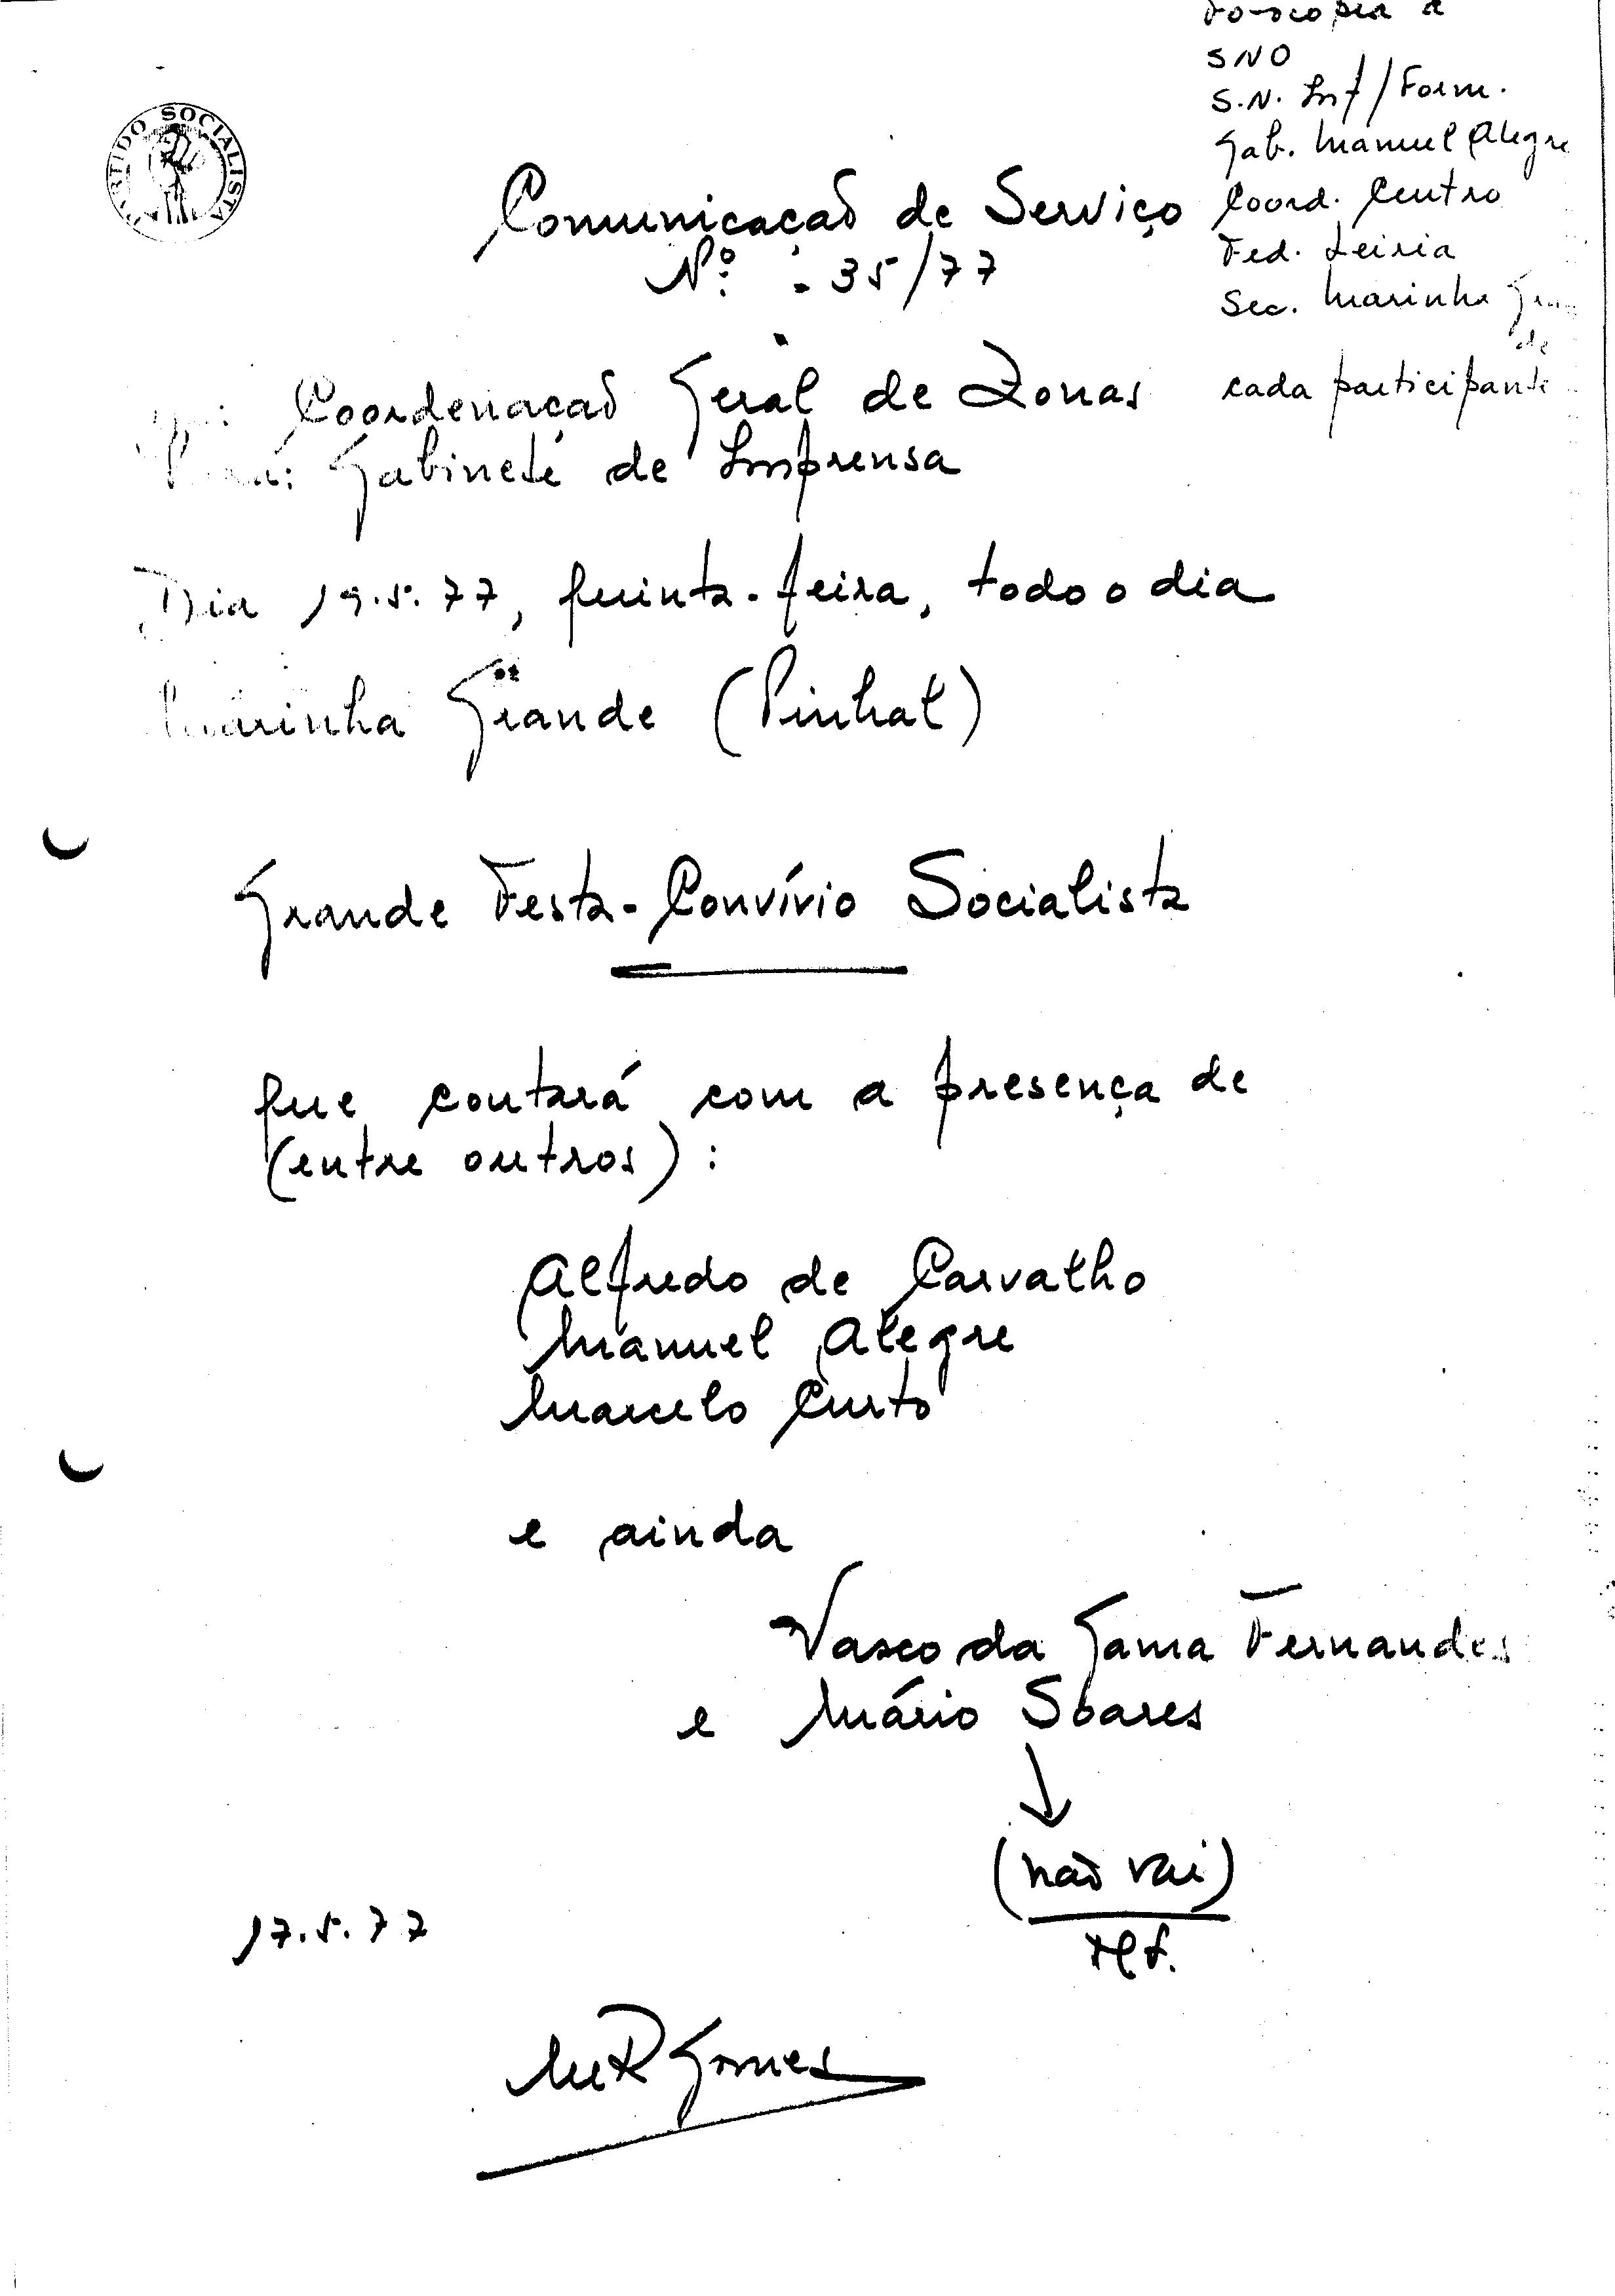 PARTIDO SOCIALISTA
Fotocópia a
SNO
S.N. Inf/Form.
Gab. Manuel Alegre
Coord. Centro
Fed. Leiria
Sec. Marinha Grande
cada participante
Comunicação de Serviço
Nº. 35/77
Coordenação Geral de Zonas
Para: Gabinete de Imprensa
Dia 19.5.77, quinta-feira, todo o dia
Marinha Grande (Pinhal)
Grande Festa-Convívio Socialista
que contará com a presença de
(entre outros):
Alfredo de Carvalho
Manuel Alegre
Marcelo Curto
e ainda
Vasco da Gama Fernandes
e Mário Soares
(não vai)
17.5.77
MR Gomes